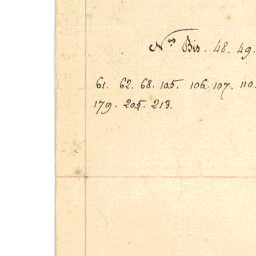 Nos Bis. 48. 49.
61. 62. 68. 105. 106. 107. 110
179. 205. 213.